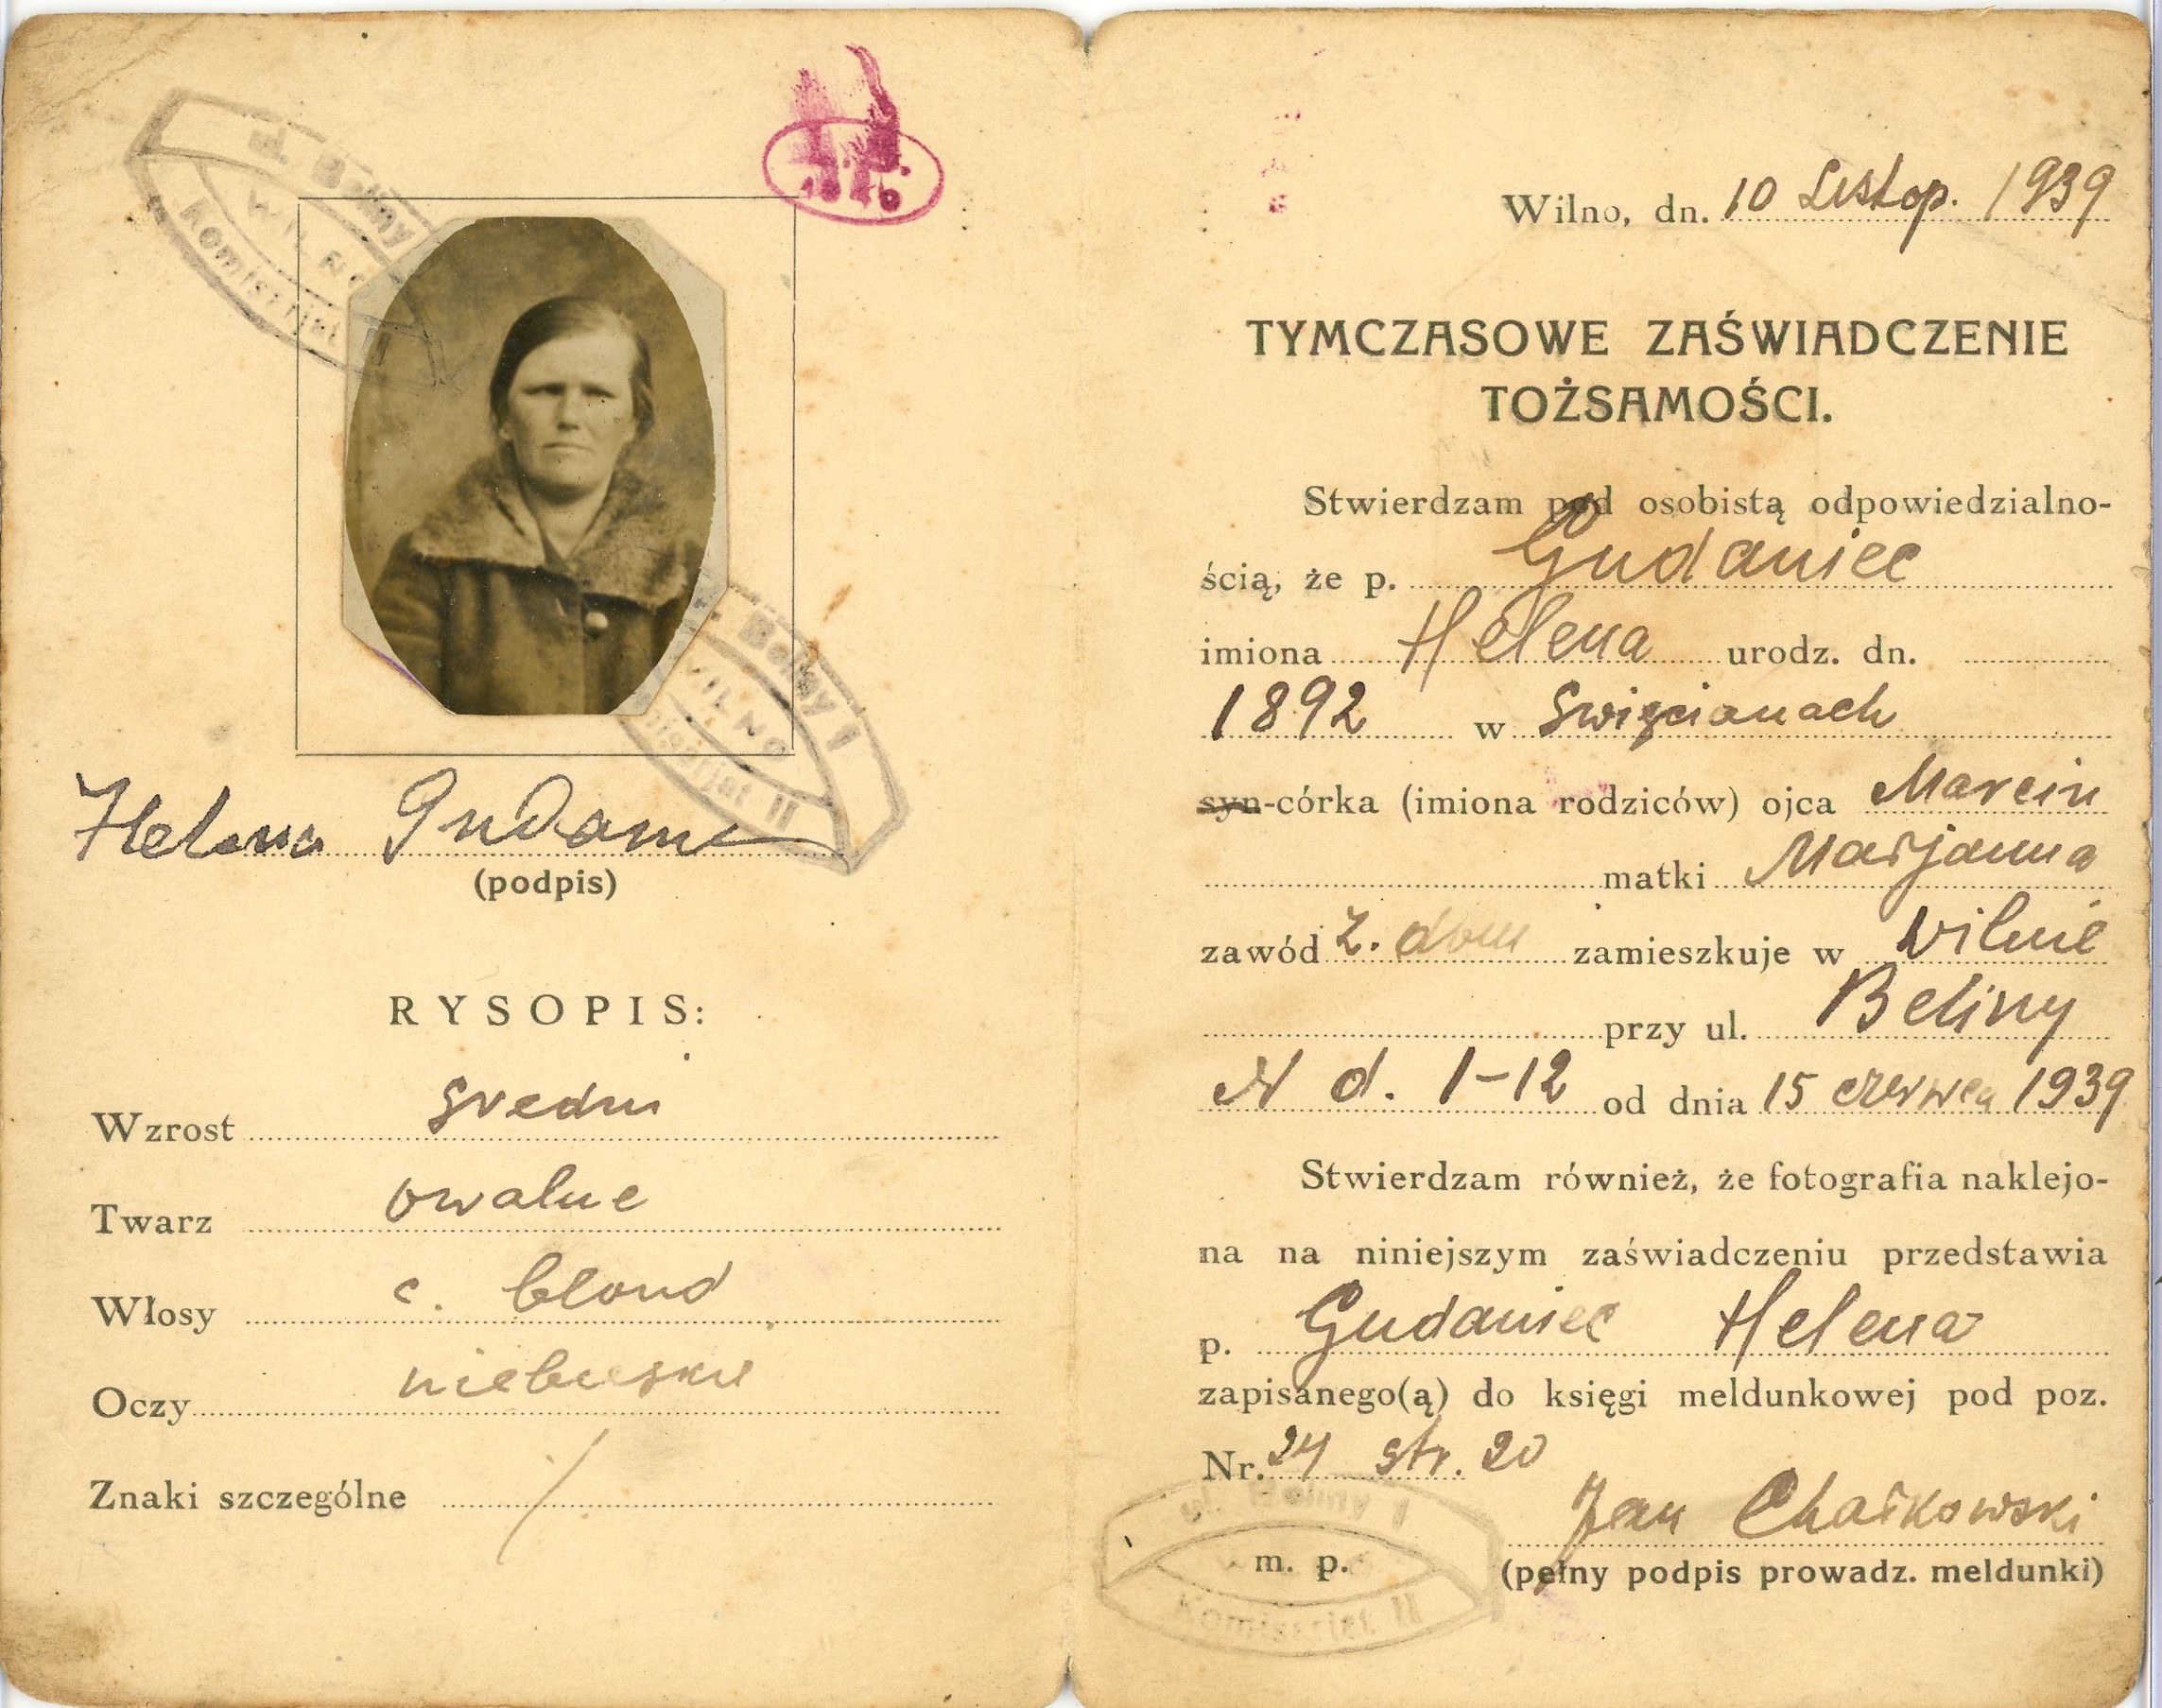 ul. Beliny
WILNO
Komisarjat II
ul. Beliny 1
WILNO
Komisarjat II
Helena Gudaniec
(podpis)
RYSOPIS:
Wzrost sredni
Twarz owalne
Włosy c. blond
Oczy niebieskie
Znaki szczególne /
Wilno, dn. 10 Listop. 1939
TYMCZASOWE ZAŚWIADCZENIE
TOŻSAMOŚCI.
Stwierdzam pod osobistą odpowiedzialno-
ścią, że p. Gudaniec
imiona Helena urodz. dn.
1892 w Swięcianach
syn-córka (imiona rodziców) ojca Marcin
matki Marjanna
zawód z. dom zamieszkuje w Wilnie
przy ul. Beliny
N d. 1-12 od dnia 15 czerwca 1939
Stwierdzam również, że fotografia naklejo-
na na niniejszym zaświadczeniu przedstawia
p. Gudaniec Helena
zapisanego(ą) do księgi meldunkowej pod poz.
Nr. 24 str. 20
Jan
(pełny podpis prowadz. meldunki)
ul. Beliny 1
m. p.
Komisarjat II